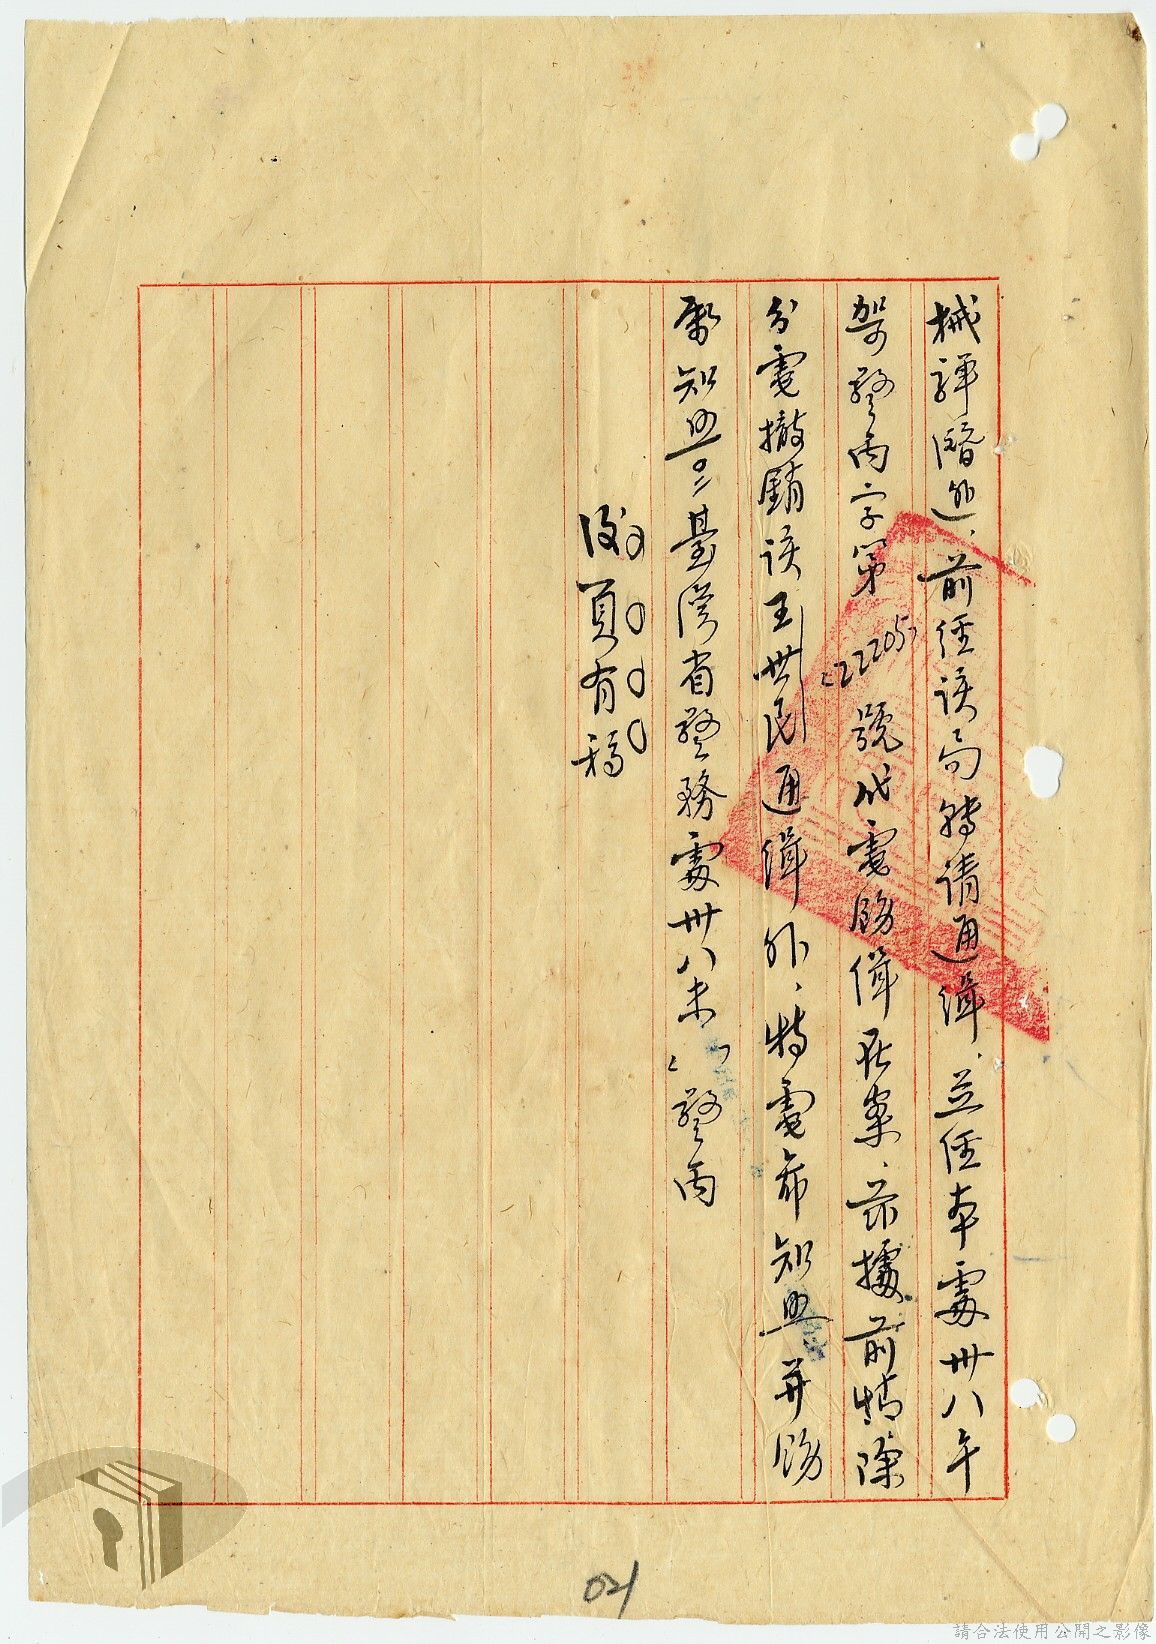 械譁潛逃、前經該局轉請通緝、並經本處卅八午
警丙字第(22205)號代電飭緝在案、茲據前情除
分電撤銷該王世民通緝外、特電希知照并飭
屬知照。臺灣省警務處卅八未()警丙
後頁有稿
021
請合法使用公開之影像